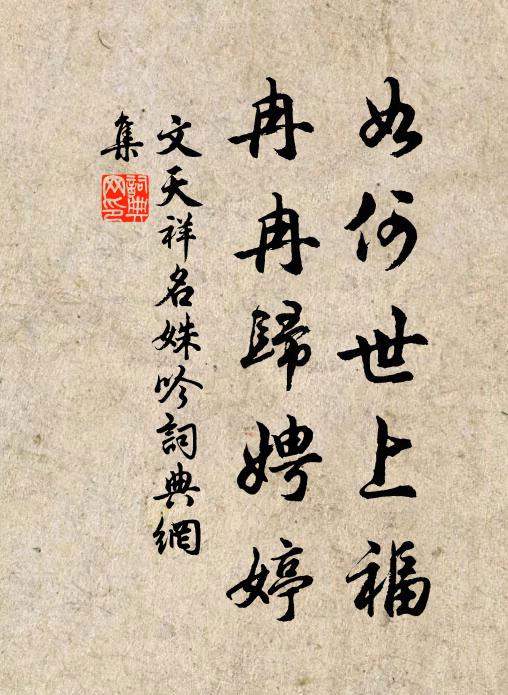 如何世上福
冉冉歸娉婷
文天祥名姝吟詞典網
集
詞典
网印